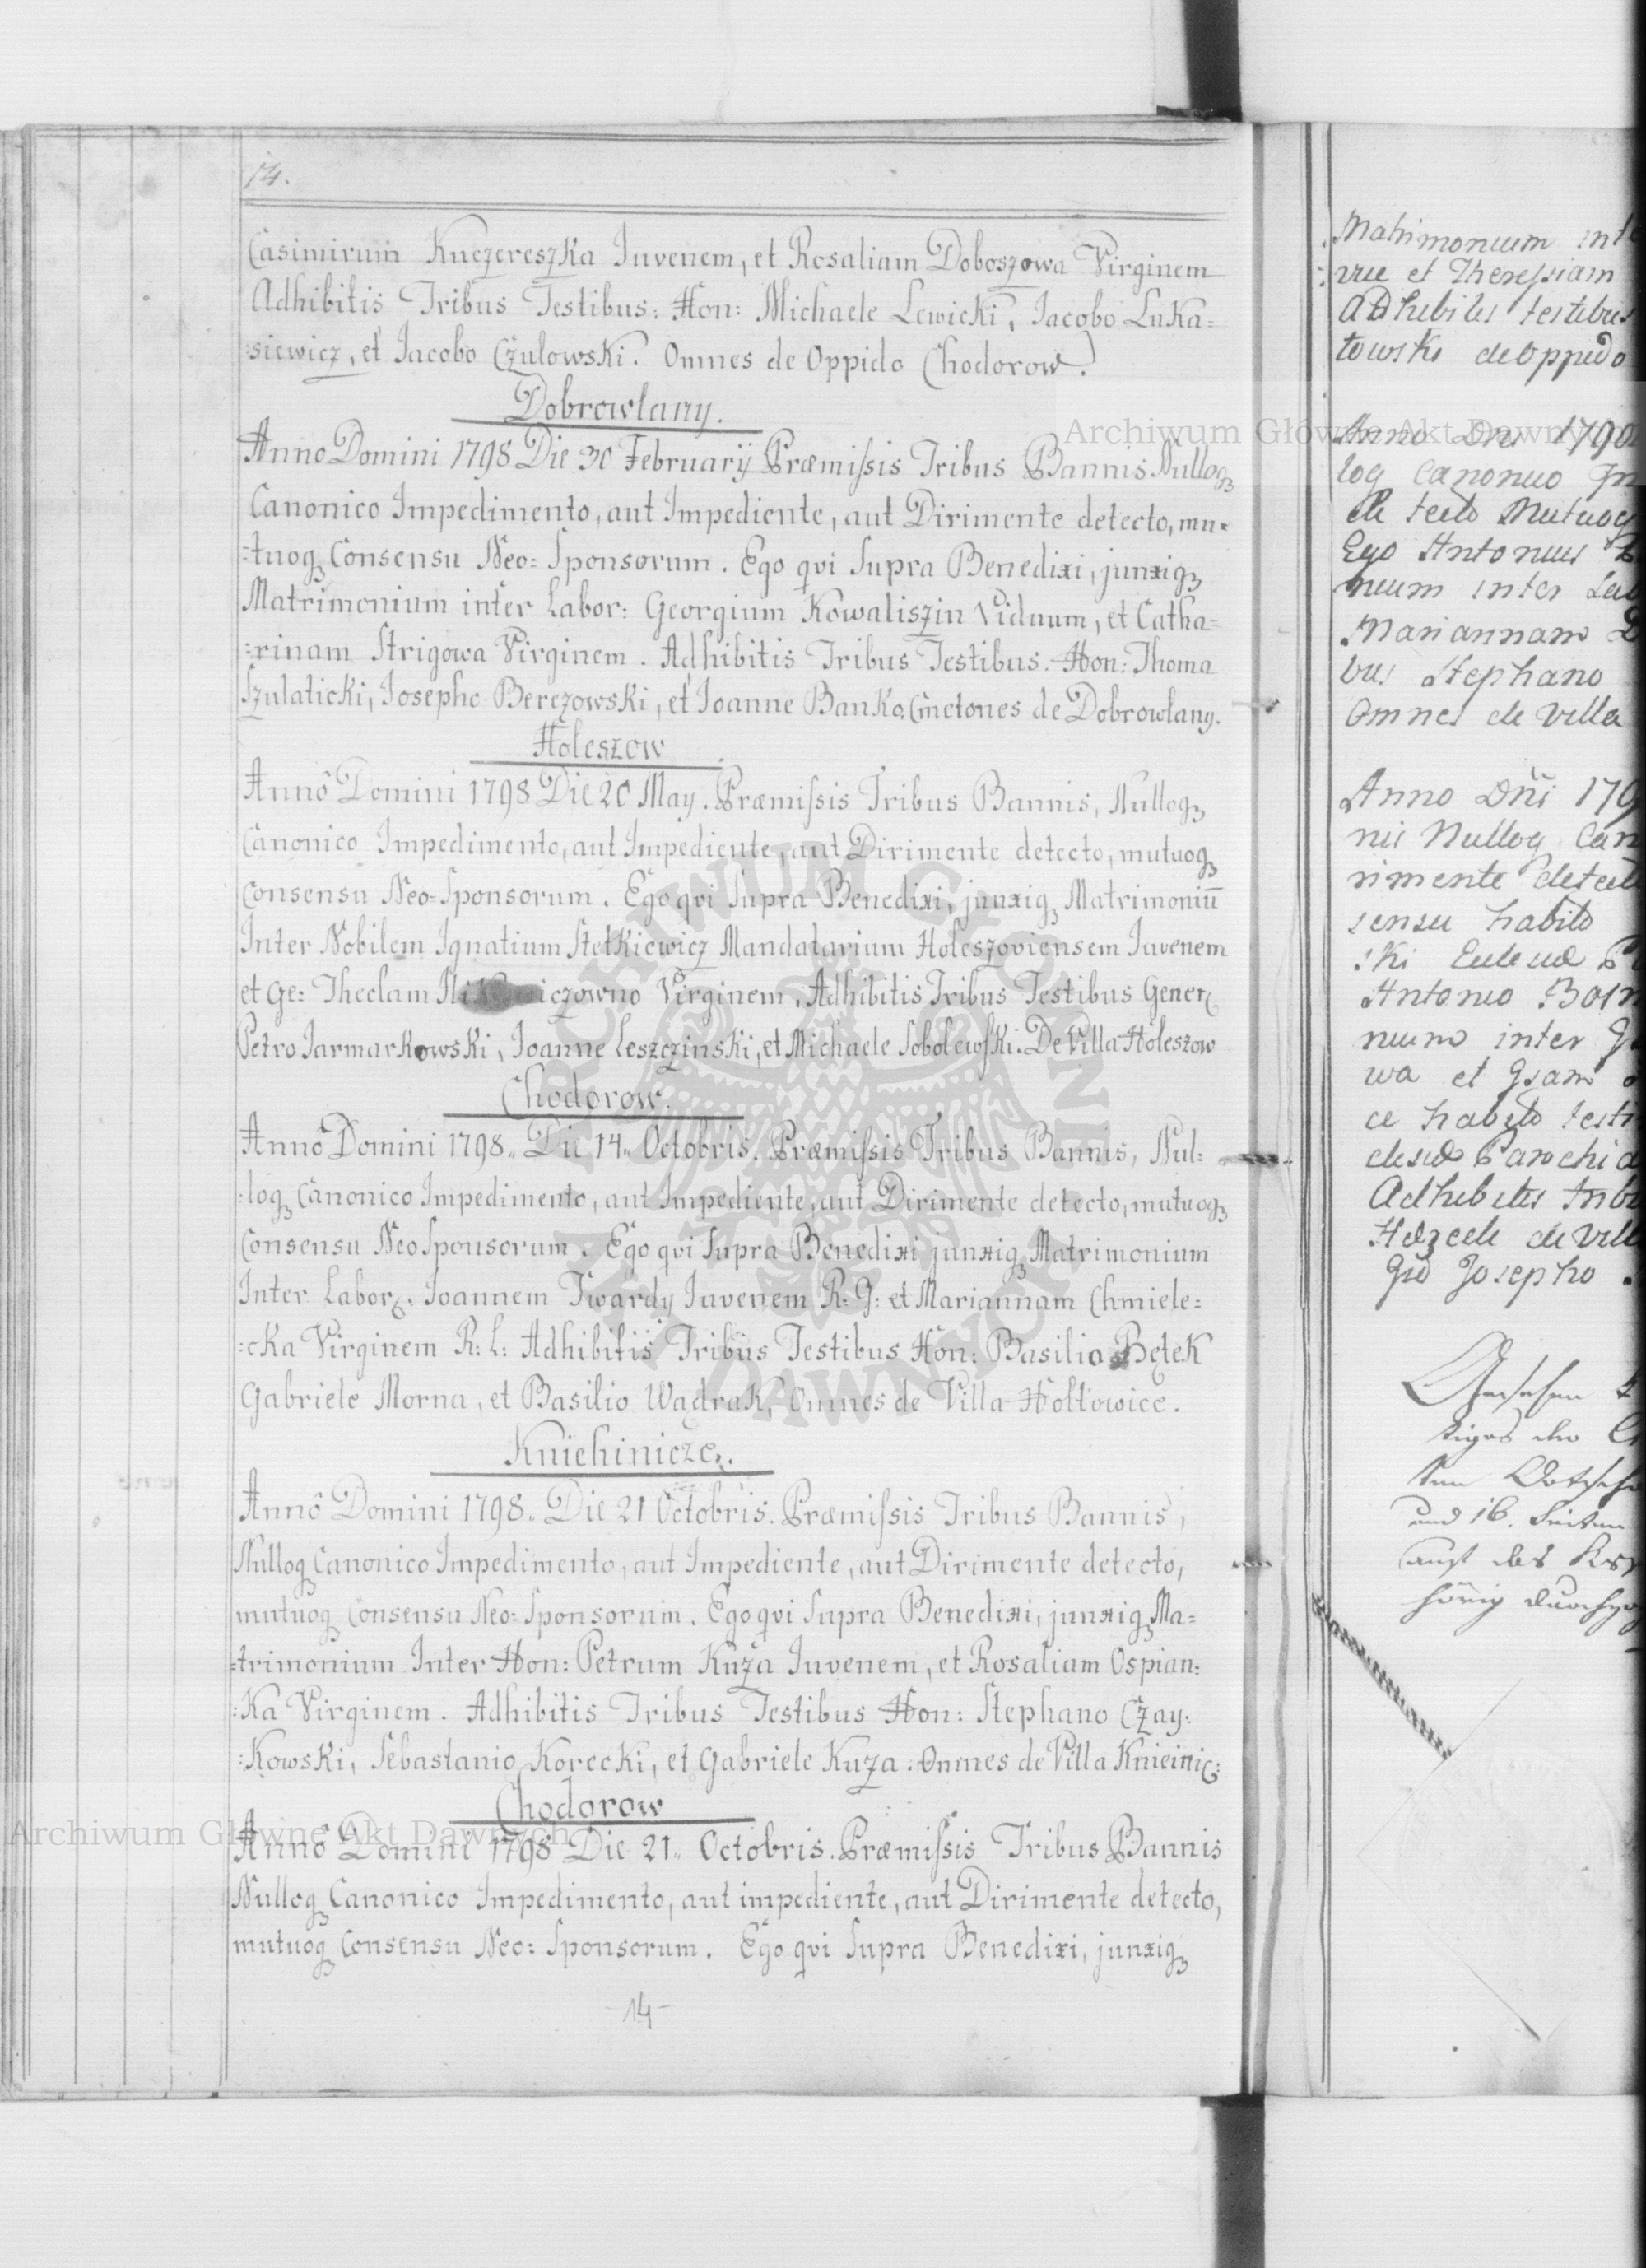 14.
Casimirum Kuczereszka Juvenem, et Rosaliam Doboszowa Virginem
Adhibitis Tribus Testibus: Hon: Michaele Lewicki, Jacobo Luka=
:siewicz, et Jacobo Czulowski. Omnes de Oppido Chodorow.
Dobrowlany.
Anno Domini 1798 Die Februarij Præmissis Tribus Bannis Nulloq3
Canonico Impedimento, aut Impediente, aut Dirimente detecto, mu=
=tuoq3 Consensu Neo= Sponsorum. Ego qvi Supra Benedixi, junxiq3
Matrimonium inter Labor: Georgium Kowaliszin Viduum, et Catha=
=rinam Strigowa Virginem. Adhibitis Tribus Testibus. Hon: Thoma
Szulaticki, Josepho Berezowski, et Joanne Banko, Cmetones de Dobrowlany.
Holeszow
Anno Domini 1798 Die 20 May. Præmissis Tribus Bannis, Nulloq3
Canonico Impedimento, aut Impediente, aut Dirimente detecto, mutuoq3
Consensu Neo=Sponsorum. Ego qvi Supra Benedixi, junxiq3 Matrimoniū
Inter Nobilem Ignatium Stetkiewicz Mandatarium Holeszoviensem Juvenem
et Ge: Theclam Virginem. Adhibitis Tribus Testibus Gener:
Petro Jarmarkowski, Joanne Leszczinski, et Michaele Sobolewski. De Villa Holeszow
Chodorow.
Anno Domini 1798.. Die 14.. Octobris. Præmissis Tribus Bannis, Nul=
:loq3 Canonico Impedimento, aut Impediente, aut Dirimente detecto, mutuoq3
Consensu Neo Sponsorum. Ego qvi Supra Benedixi junxiq3 Matrimonium
Inter Labor: Joannem Twardy Juvenem R: G: et Mariannam Chmiele=
=cka Virginem R: L: Adhibitis Tribus Testibus Hon: Basilio Bętek
Gabriele Morna, et Basilio Wądrak, Omnes de Villa Hołtowice.
Knichinicze.
Anno Domini 1798. Die 21 Octobris. Præmissis Tribus Bannis,
Nulloq3 Canonico Impedimento, aut Impediente, aut Dirimente detecto,
mutuoq3 Consensu Neo= Sponsorum. Ego qvi Supra Benedixi, junxiq3 Ma=
=trimonium Inter Hon: Petrum Kuza Juvenem, et Rosaliam Ospian:
:ka Virginem. Adhibitis Tribus Testibus Hon: Stephano Czay:
:kowski, Sebastanio Korecki, et Gabriele Kuza. Omnes de Villa Knieinic:
Chodorow
Anno Domini 1798 Die 21.. Octobris. Præmissis Tribus Bannis
Nulloq3 Canonico Impedimento, aut impediente, aut Dirimente detecto,
mutuoq3 Consensu Neo= Sponsorum. Ego qvi Supra Benedixi, junxiq3
-14-
Matrimonium
et Theresiam
Adhibitis testibus
towski de oppido
Anno Dni
loq Canonico
tecto Mutuoq
Ego Antonius
nium inter
Mariannam
bus Stephano
Omnes de Villa
Anno Dñi 179
nis Nulloq Can
rimente detect
sensu habito
ski
Antonio
nium inter
wa et
ce habito testi
Parochia
Adhibitis Trib
de Vill
Josepho
und 16.
des
Archiwum Główne Akt Dawnych
Archiwum Główne Akt Dawnych
ARCHIWUM GŁÓWNE AKT DAWNYCH